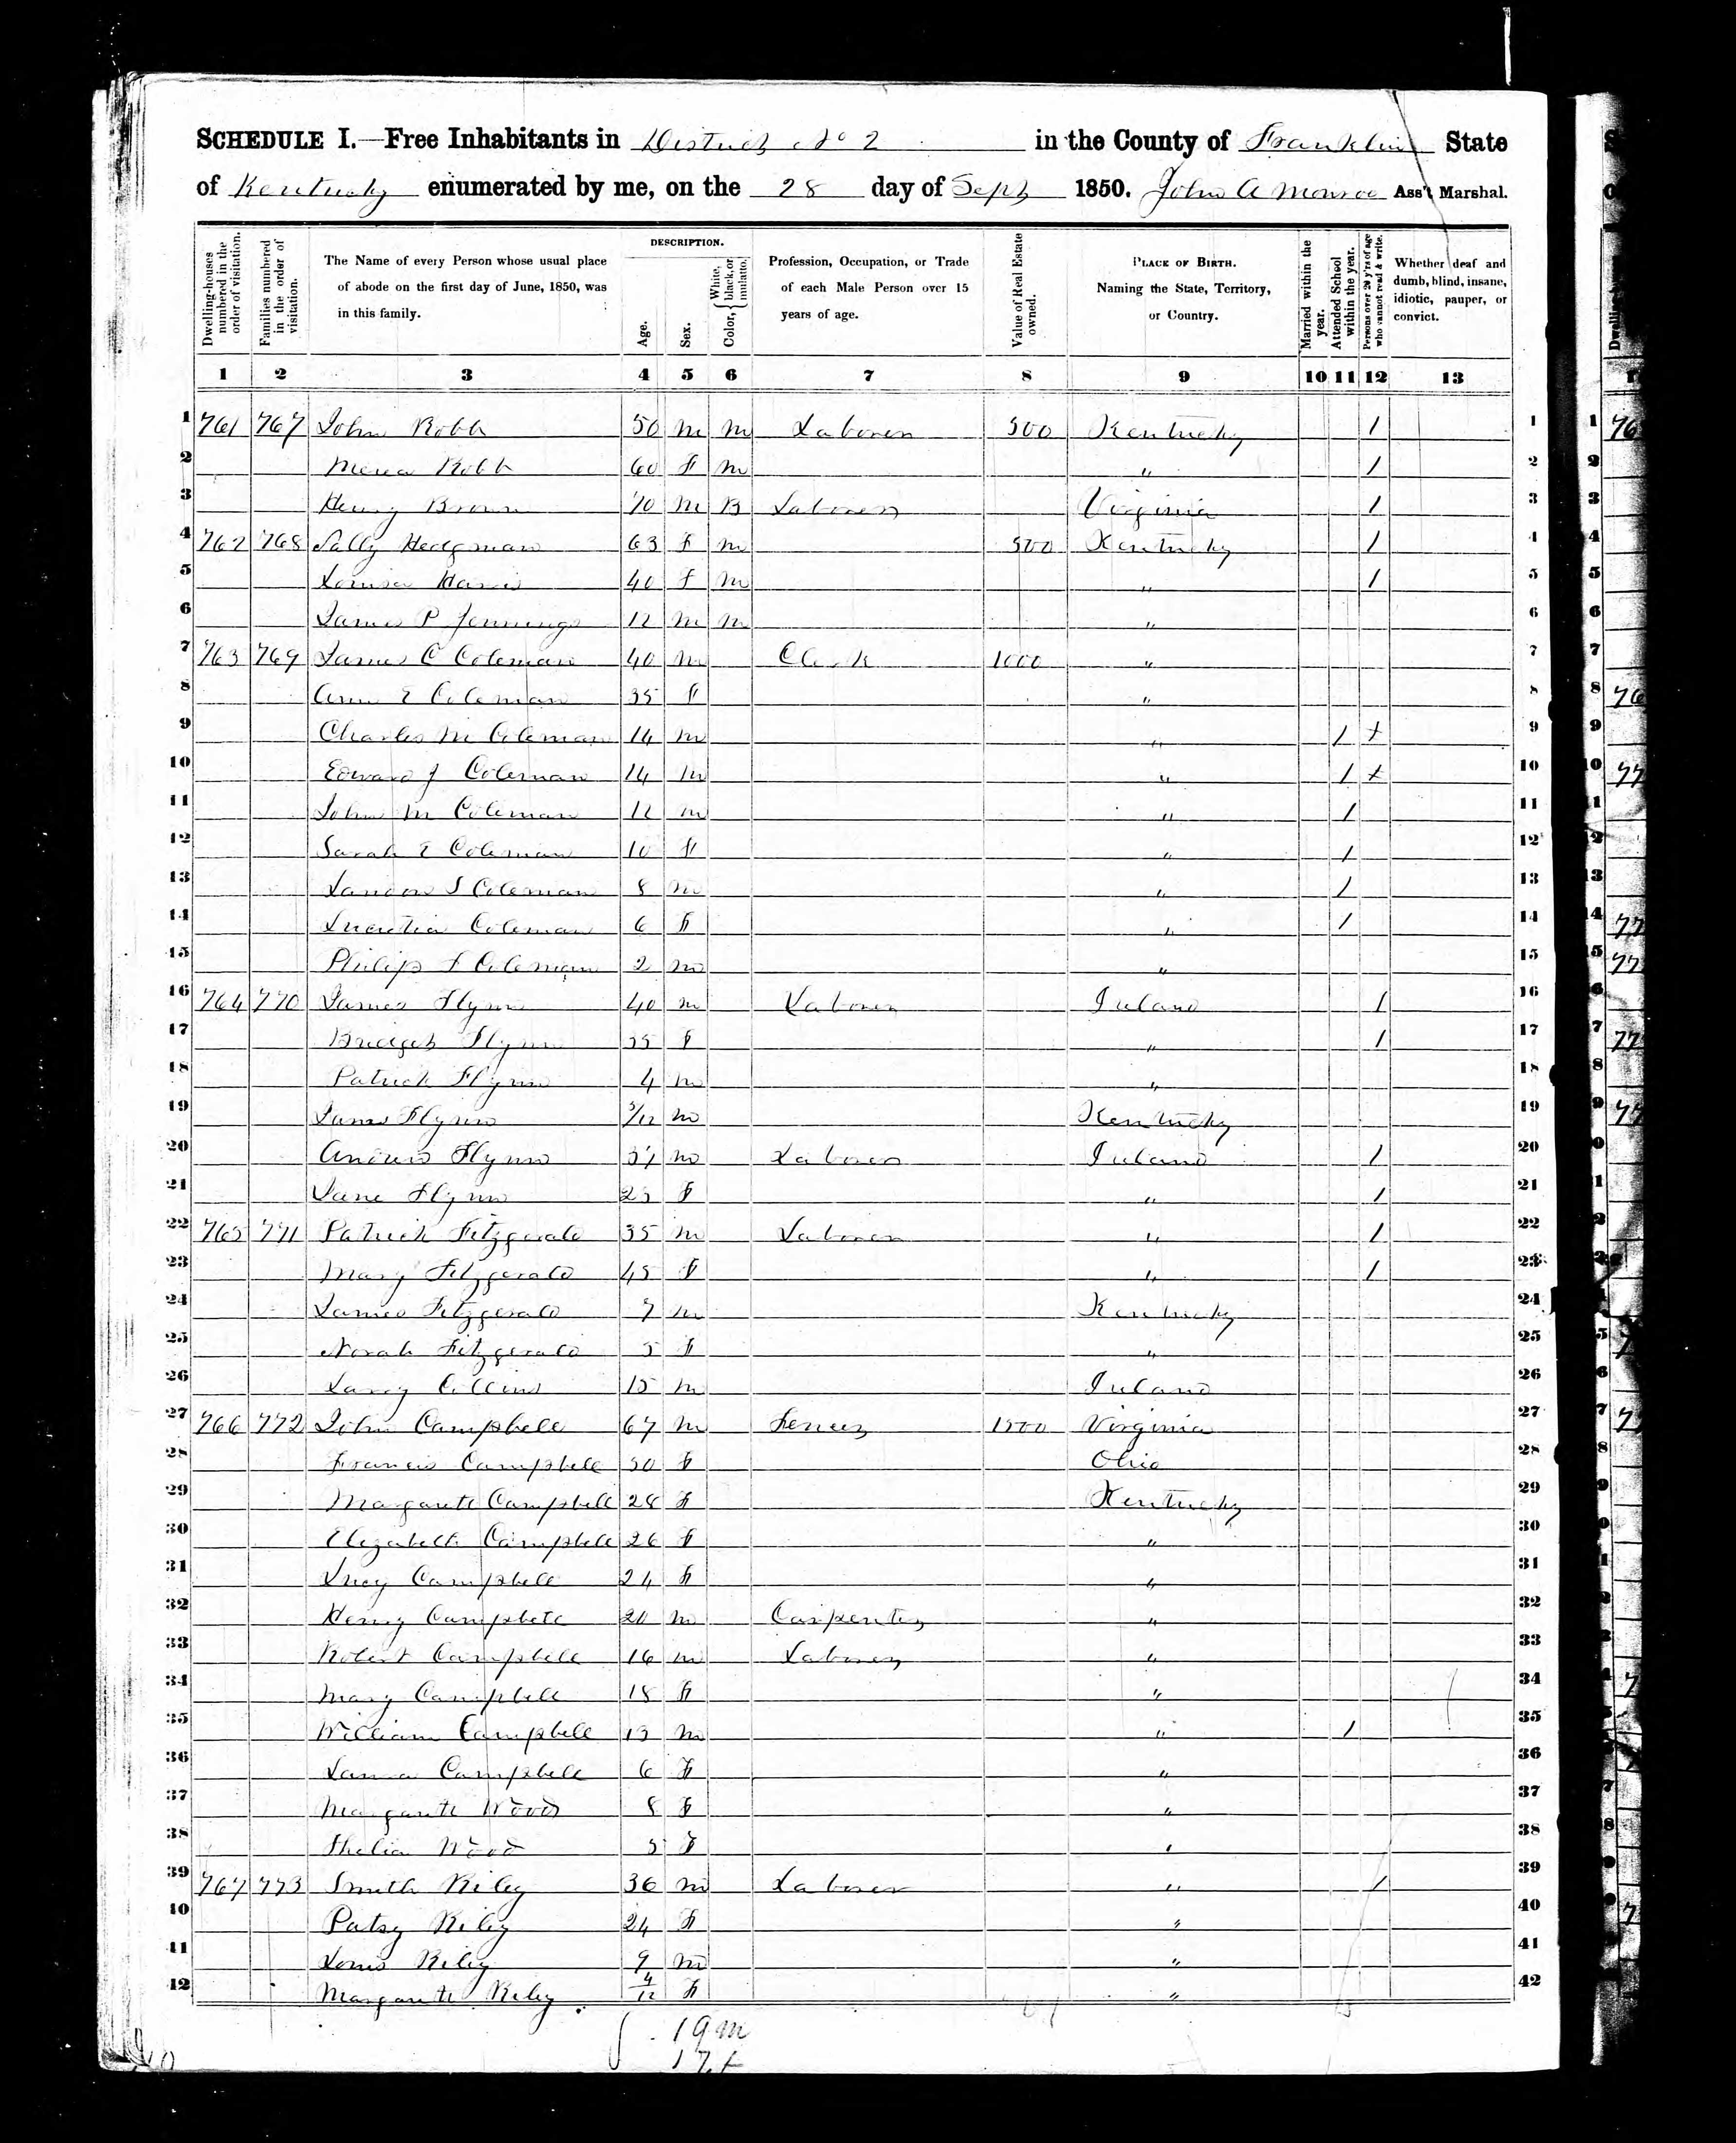 SCHEDULE I.—Free Inhabitants in District No 2 in the County of Franklin State
of Kentucky enumerated by me, on the 28 day of Sept 1850. John A Monroe Ass't Marshal.
Dwelling-houses numbered in the order of visitation.
Families numbered in the order of visitation.
The Name of every Person whose usual place of abode on the first day of June, 1850, was in this family.
DESCRIPTION.
Age.
Sex.
Color, { White, black, or mulatto.
Profession, Occupation, or Trade of each Male Person over 15 years of age.
Value of Real Estate owned.
PLACE OF BIRTH. Naming the State, Territory, or Country.
Married within the year.
Attended School within the year.
Persons over 20 y'rs of age who cannot read & write.
Whether deaf and dumb, blind, insane, idiotic, pauper, or convict.
1 2 3 4 5 6 7 8 9 10 11 12 13
1 761 767 John Robb 50 m m Laborer 500 Kentucky / 1
2 Robb 60 f m " / 2
3 Henry Brown 70 m B Laborer Virginia / 3
4 762 768 Sally Hedgman 63 f m 500 Kentucky / 4
5 Louisa Harris 40 f m " / 5
6 James P Jennings 12 m m " 6
7 763 769 James C Coleman 40 m Clerk 1000 " 7
8 Ann E Coleman 35 f " 8
9 Charles M Coleman 14 m " / + 9
10 Edward J Coleman 14 m " / + 10
11 John M Coleman 12 m " / 11
12 Sarah E Coleman 10 f " / 12
13 Landon S Coleman 8 m " / 13
14 Lucretia Coleman 6 f " / 14
15 Philip F Coleman 2 m " 15
16 764 770 James Flynn 40 m Laborer Ireland / 16
17 Bridget Flynn 35 f " / 17
18 Patrick Flynn 4 m " 18
19 James Flynn 3/12 m Kentucky 19
20 Andrew Flynn 37 m Laborer Ireland / 20
21 Jane Flynn 25 f " / 21
22 765 771 Patrick Fitzgerald 35 m Laborer " / 22
23 Mary Fitzgerald 45 f " / 23
24 James Fitzgerald 7 m Kentucky 24
25 Norah Fitzgerald 5 f " 25
26 Larry Collins 15 m Ireland 26
27 766 772 John Campbell 67 m 1500 Virginia 27
28 Francis Campbell 50 f Ohio 28
29 Margarett Campbell 28 f Kentucky 29
30 Elizabeth Campbell 26 f " 30
31 Lucy Campbell 24 f " 31
32 Henry Campbell 20 m Carpenter " 32
33 Robert Campbell 16 m Laborer " 33
34 Mary Campbell 18 f " 34
35 William Campbell 13 m " / 35
36 Campbell 6 f " 36
37 Margarett Wood 8 f " 37
38 Wood 5 f " 38
39 767 773 Smith Riley 36 m Laborer " / 39
40 Patsy Riley 24 f " 40
41 Louis Riley 9 m " 41
42 Margarett Riley 4/12 f " 42
19 m
17 f